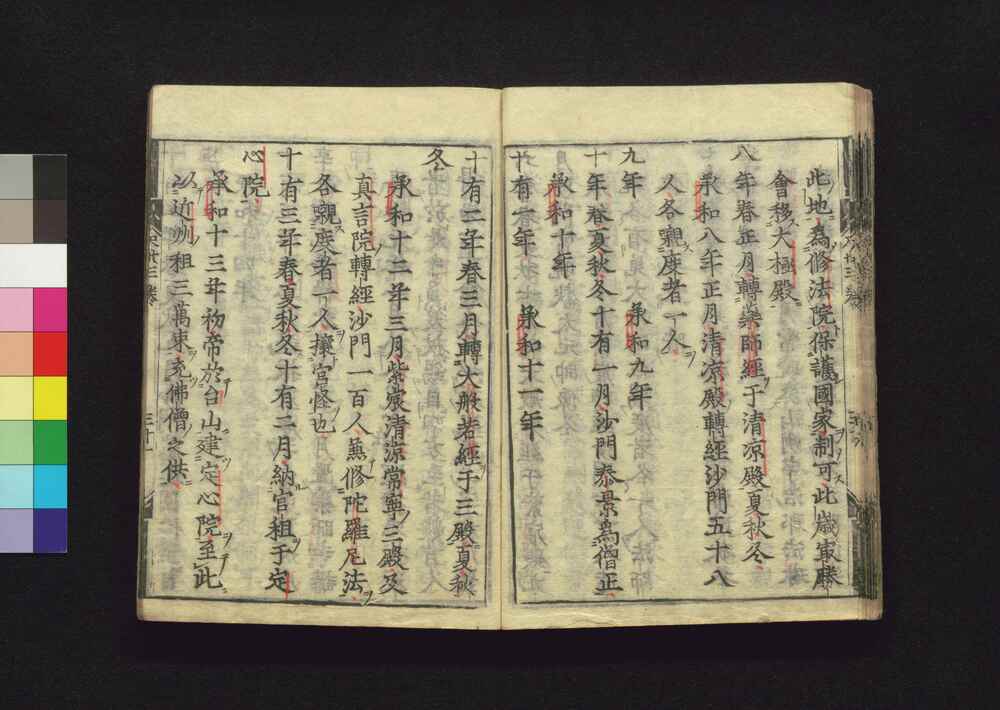 此地為修法院保護國家制可此歲最勝
會移大極殿
八年春正月轉藥師經于清凉殿夏秋冬
承和八年正月清凉殿轉經沙門五十八
人各覩度者一人
九年 承和九年
十年春夏秋冬十有一月沙門泰景為僧正
承和十年
十有一年 承和十一年
十有二年春三月轉大般若經于三殿夏秋
冬
承和十二年三月紫宸清涼常寧三殿及
真言院轉經沙門一百人兼修陀羅尼法
各覩度者一人攘宮怪也
十有三年春夏秋冬十有二月納官租于定
心院
承和十三年初帝於台山建定心院至此
以近州租三萬束充佛僧之供